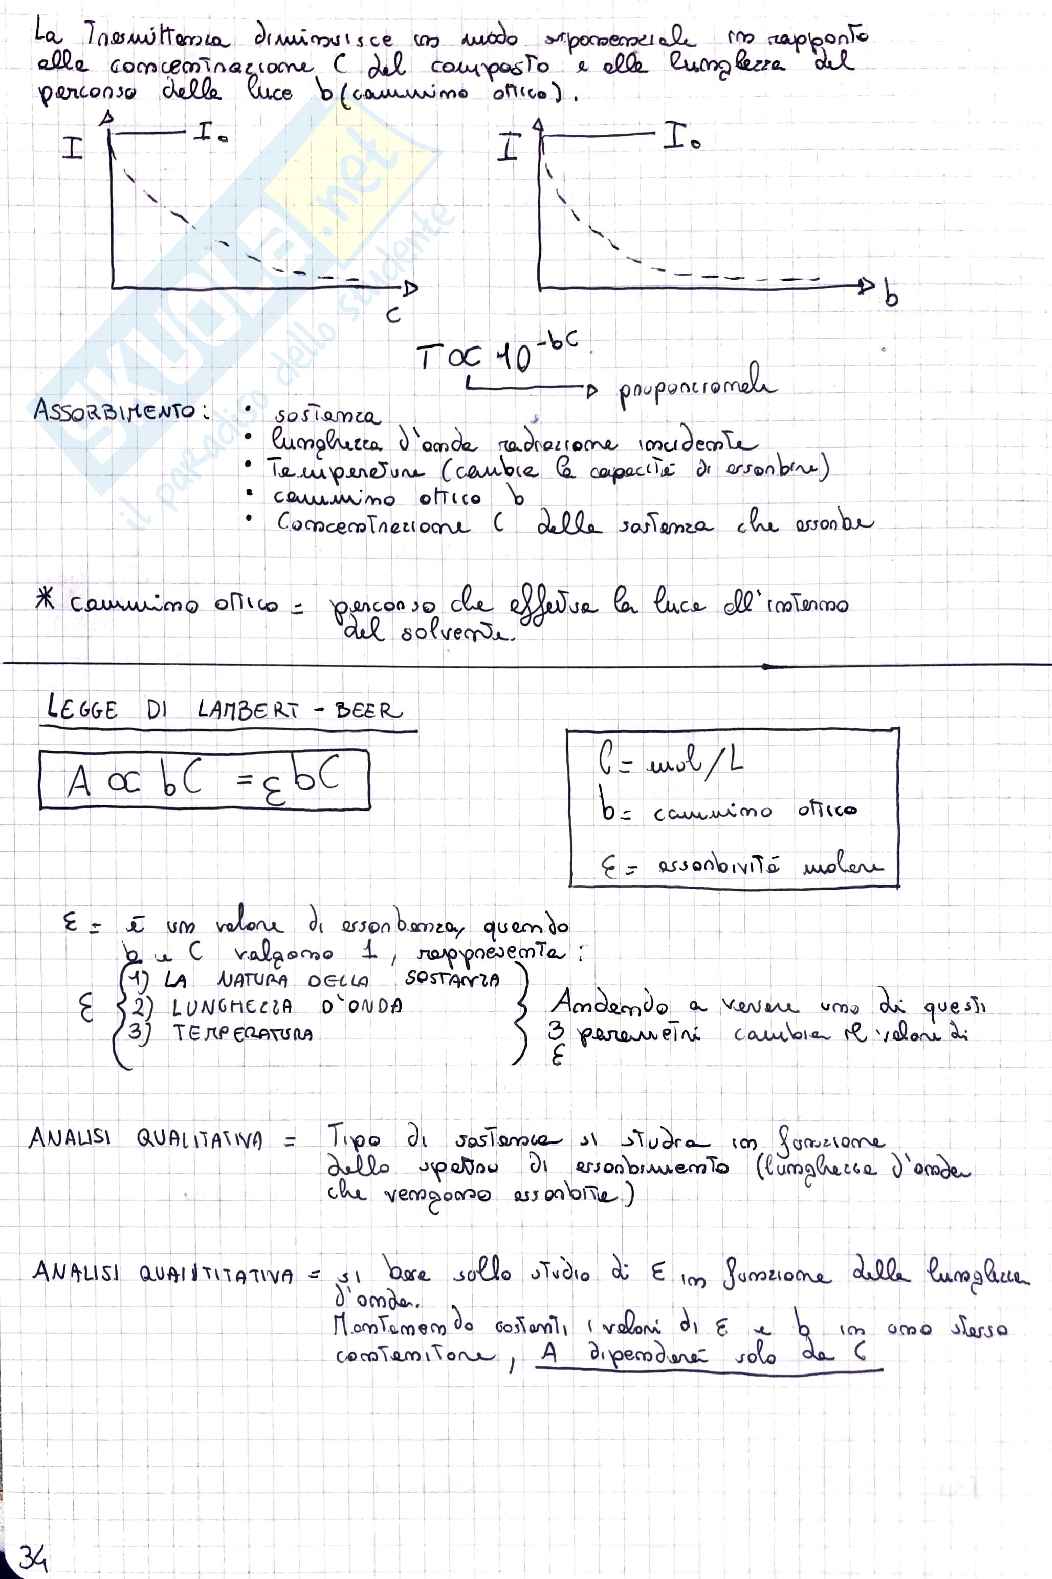 La Trasmittanza diminuisce in modo esponenziale in rapporto
alla concentrazione C del composto e alla lunghezza del
percorso della luce b (cammino ottico).
I I₀
C
I I₀
b
T ∝ 10⁻ᵇᶜ
proporzionale
ASSORBIMENTO: • sostanza
• lunghezza d'onda radiazione incidente
• Temperatura (cambia la capacità di assorbire)
• cammino ottico b
• Concentrazione C della sostanza che assorbe
* cammino ottico = percorso che effettua la luce all'interno
del solvente.
LEGGE DI LAMBERT - BEER
A ∝ bC = εbC
C = mol/L
b = cammino ottico
ε = assorbività molare
ε = è un valore di assorbanza, quando
b e C valgono 1, rappresenta:
ε
1) LA NATURA DELLA SOSTANZA
2) LUNGHEZZA D'ONDA
3) TEMPERATURA
Andando a variare uno di questi
3 parametri cambia il valore di
ε
ANALISI QUALITATIVA = Tipo di sostanza si studia in funzione
dello spettro di assorbimento (lunghezza d'onda
che vengono assorbite)
ANALISI QUANTITATIVA = si basa sullo studio di ε in funzione della lunghezza
d'onda.
Mantenendo costanti i valori di ε e b in uno stesso
contenitore, A dipenderà solo da C
34
SKUOLA.net
il paradiso dello studente